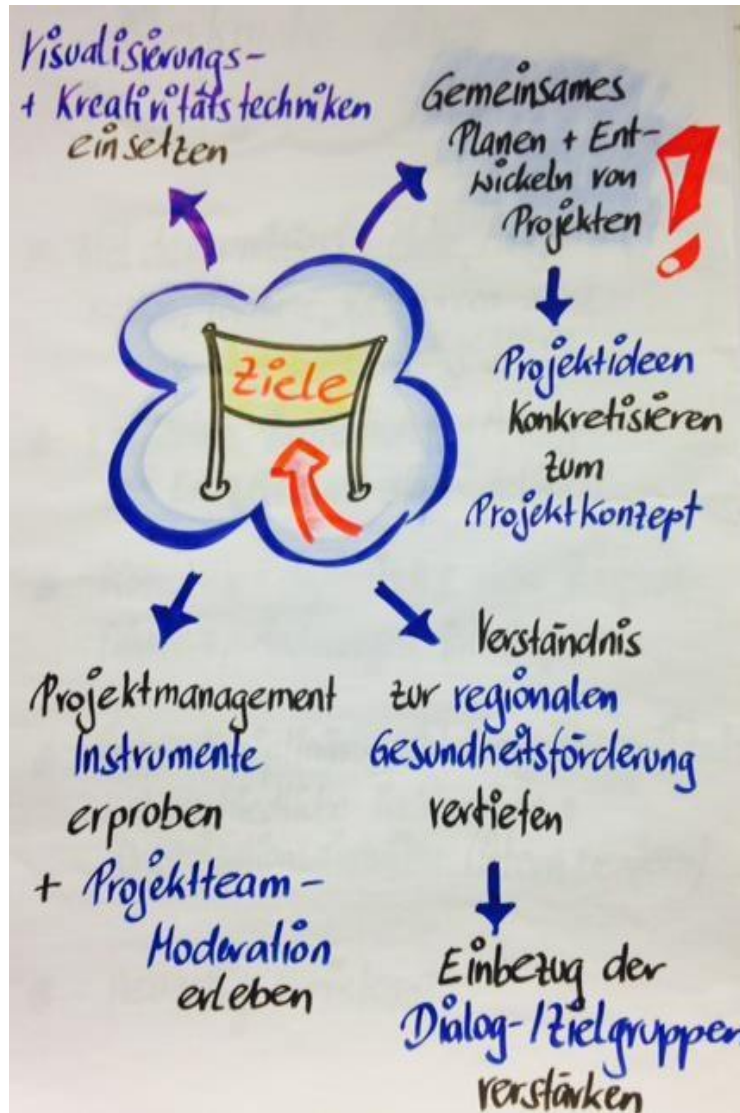 Visualisierungs-
+ Kreativitätstechniken
einsetzen
Gemeinsames
Planen + Ent-
wickeln von
Projekten
!
Projektideen
Konkretisieren
zum
Projektkonzept
Ziele
Projektmanagement
Instrumente
erproben
+ Projektteam-
Moderation
erleben
Verständnis
zur regionalen
Gesundheitsförderung
vertiefen
Einbezug der
Dialog-/Zielgruppen
verstärken